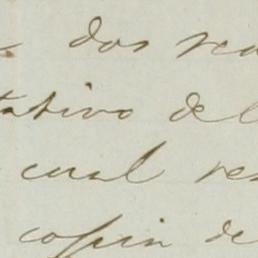 dos rea
tativo del
cual res
copia de